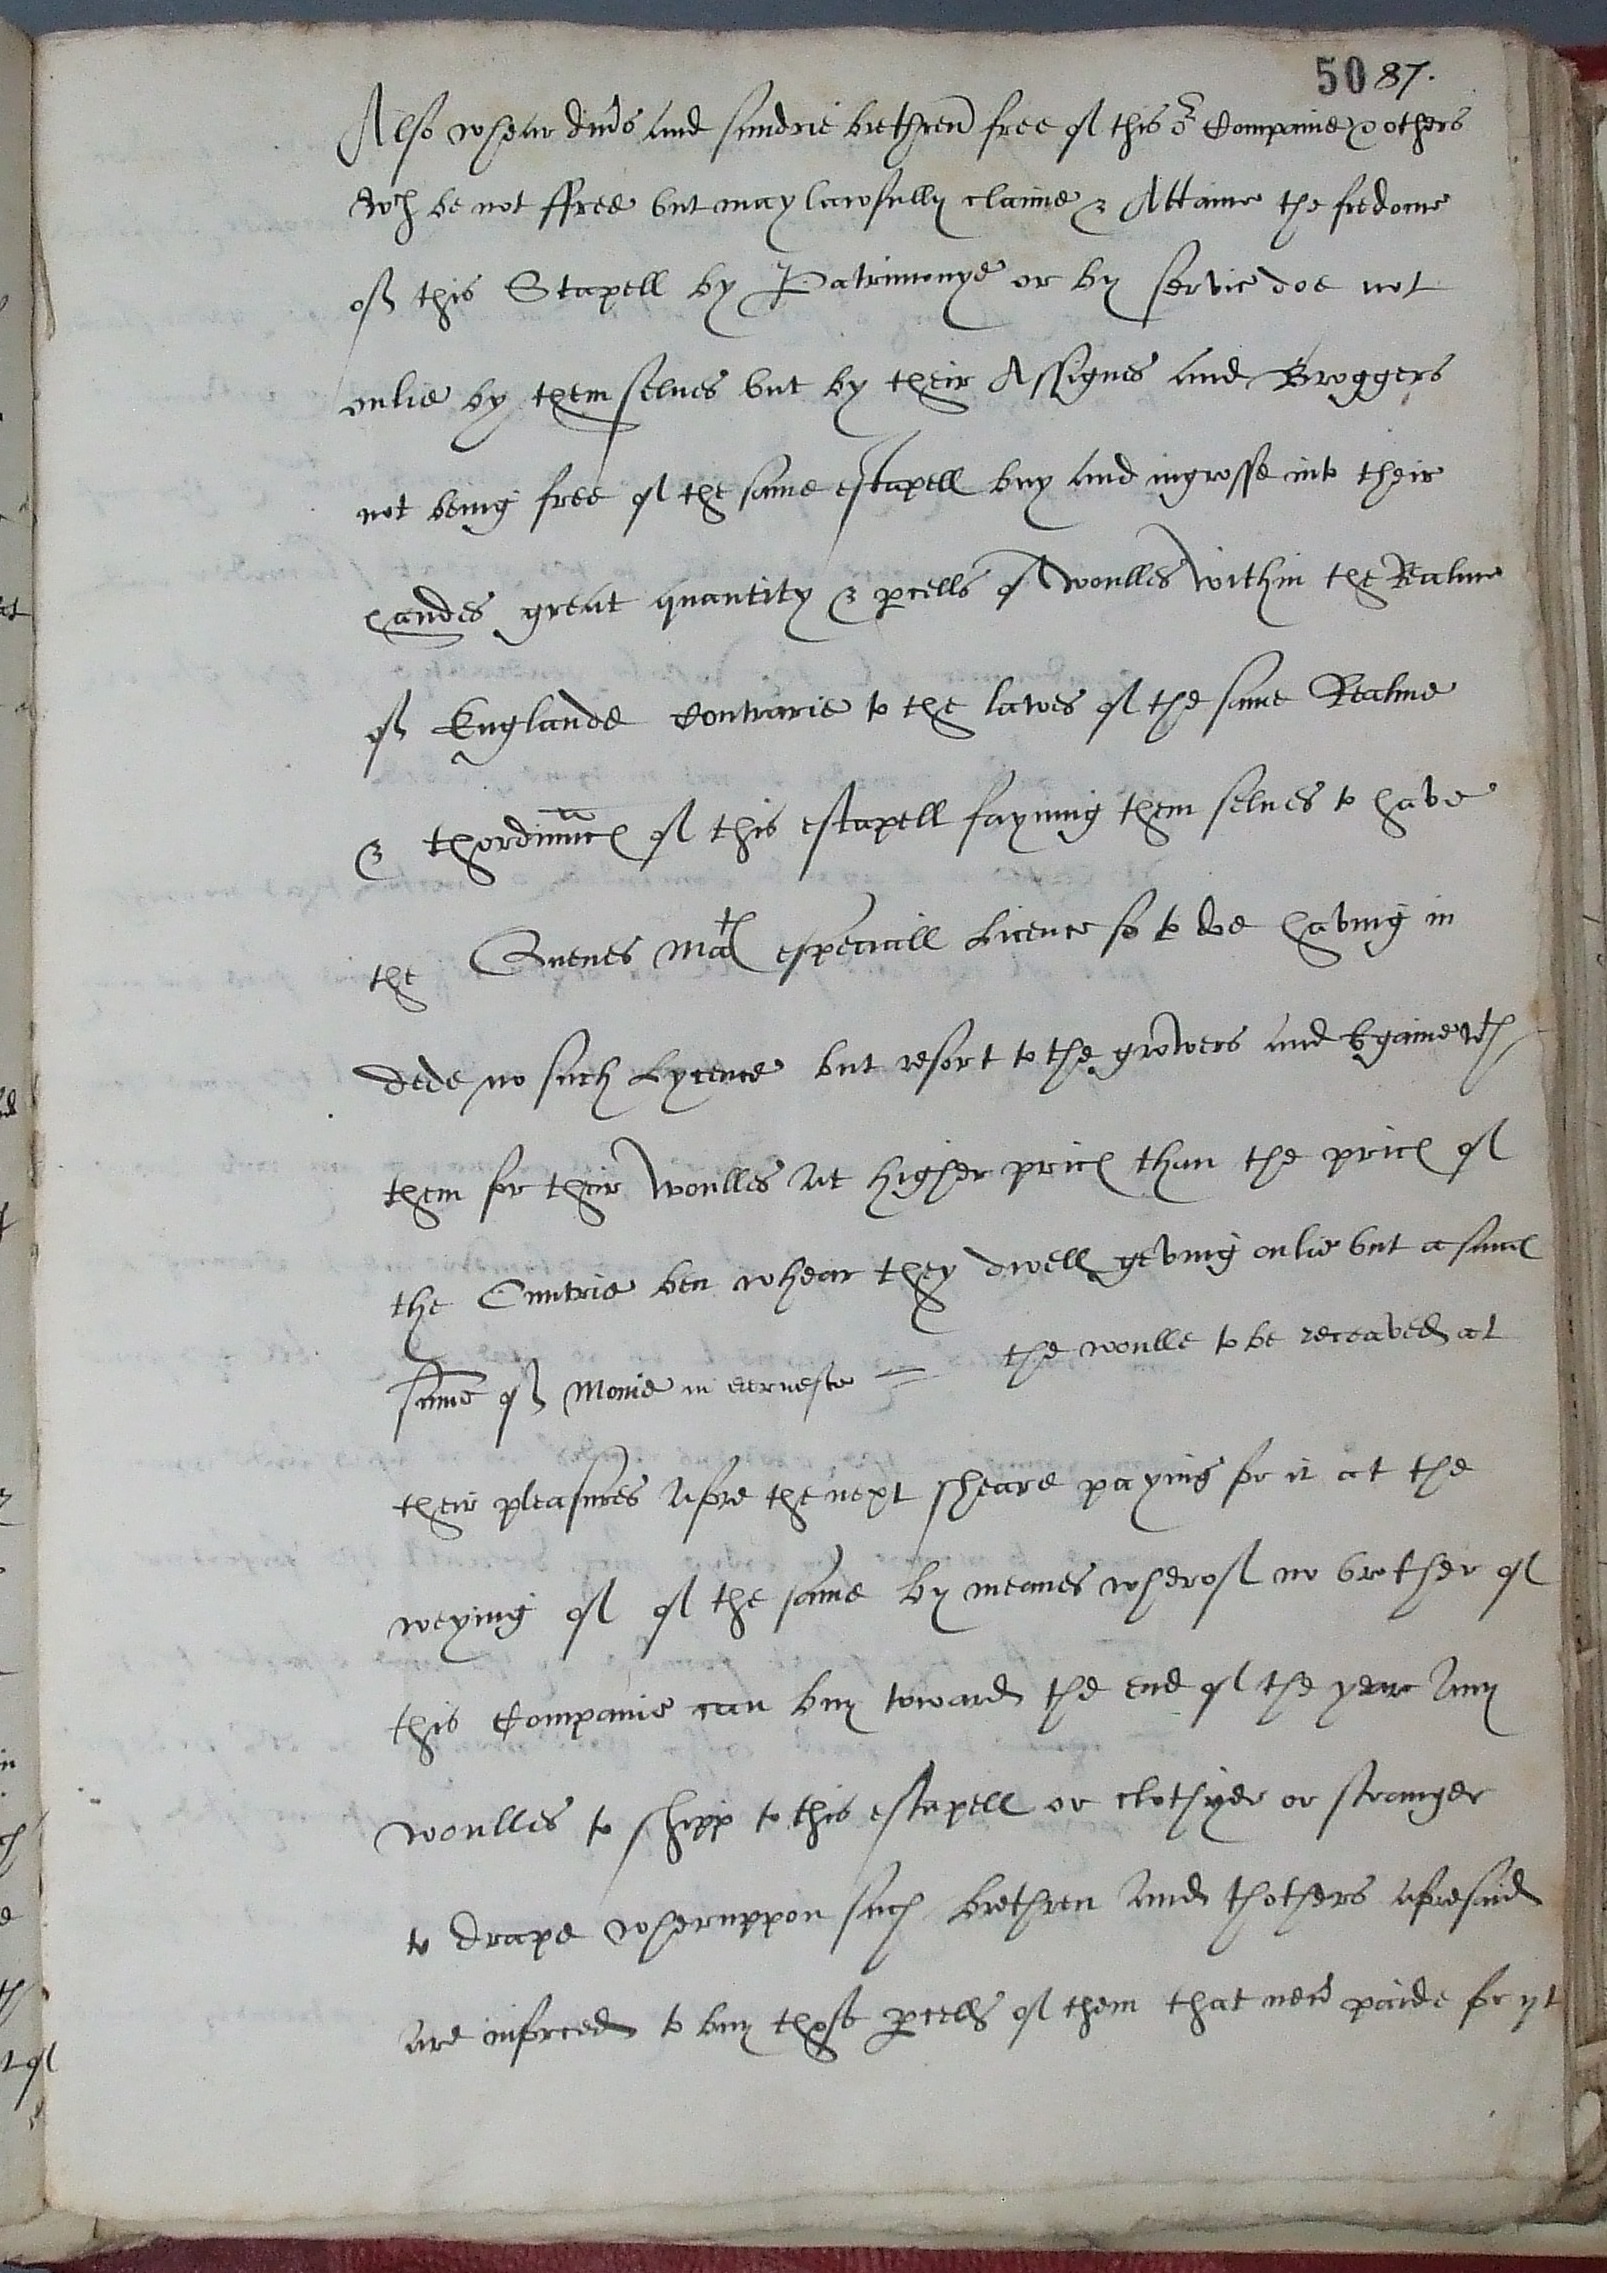 50 87.
Also whear divs and sundrie brethren free of this or Companie & others
wch be not ffree but may lawfully claime & Attaine the fredome
of this Stapell by Patrimonye or by servic doe not
onlie by them selves but by their Assignes and Broggers
not being free of the same estapell buy and ingrosse into their
handes great quantity & pcells of woulles within the Realme
of Englande Contrarie to the lawes of the same Realme
& thordinnc of this estapell fayning them selves to have
the Quenes Matꝭ especiall Licence so to doe having in
dede no such Lycence but resort to the growers and bgaine wth
them for their woulles at higher pricꝭ than the pricꝭ of
the Cuntrie ben whear they dwell geving onlie but a smal
sume of Monie in earneste = the woulle to be receaved at
their pleasures afore the next sheare paying for it at the
weying of of the same by meanes wherof no brother of
this Companie can buy toward the end of the year Any
woulles to shipp to this estapell or clothyer or stranger
to drape wheruppon such brethren and thothers aforesaid
are inforced to buy those pcells of them that nevr paide for yt